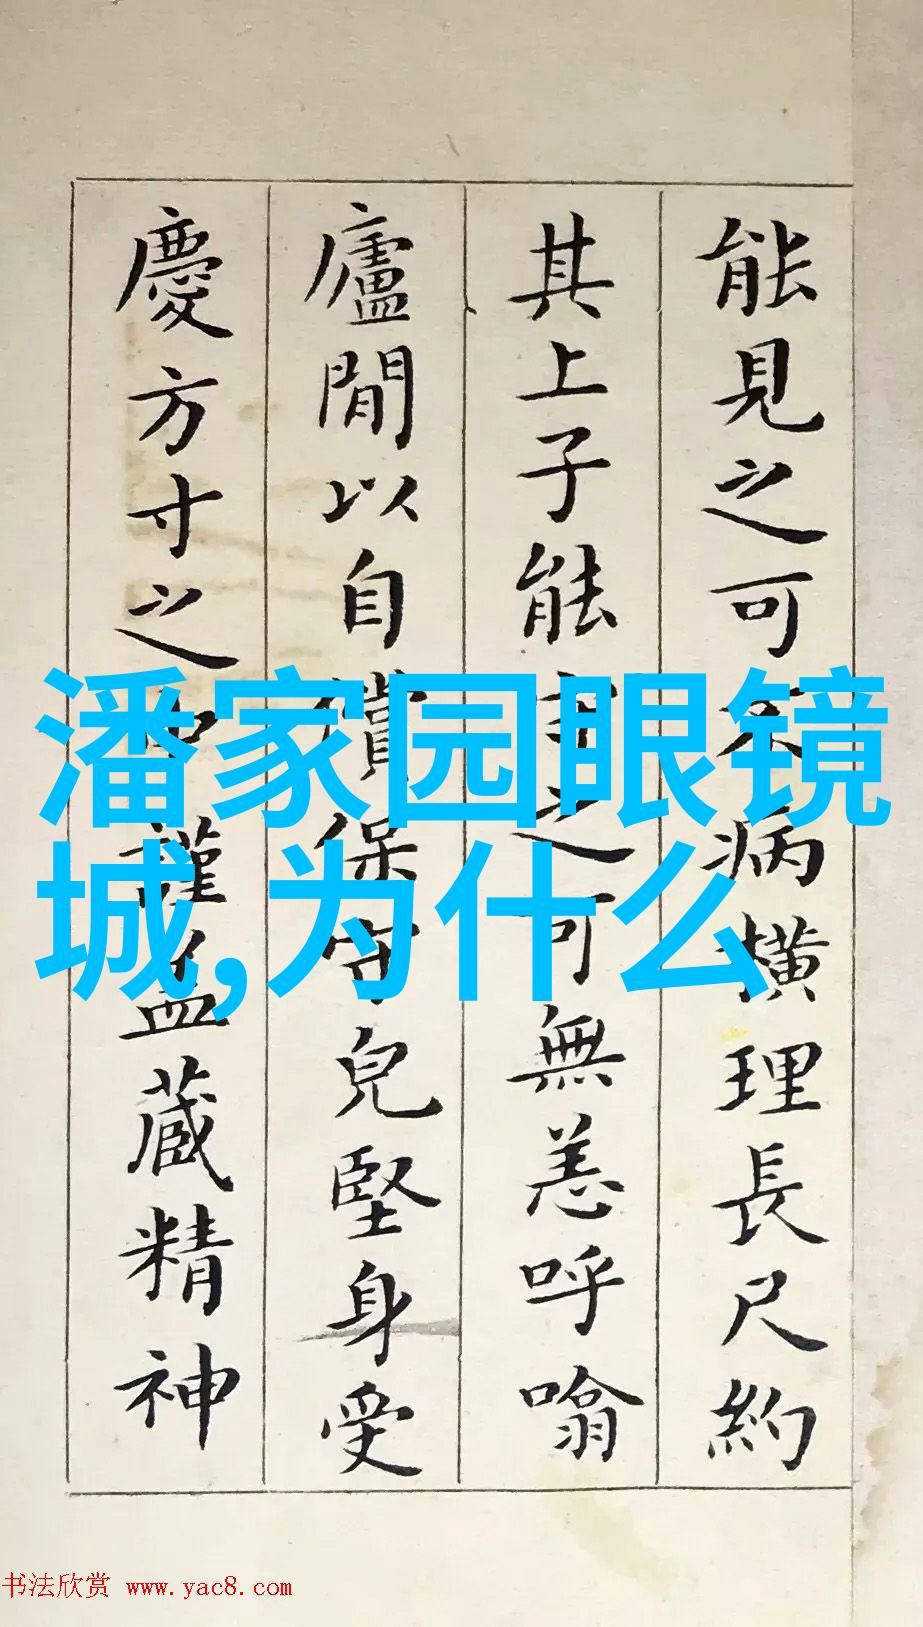 能見之可不病横理長尺約
其上子能守之可無恙呼噏
廬間以自償保守兒堅身受
慶方寸之中謹盖蔵精神
潘家园眼镜
城,为什么
书法欣赏 www.yac8.com